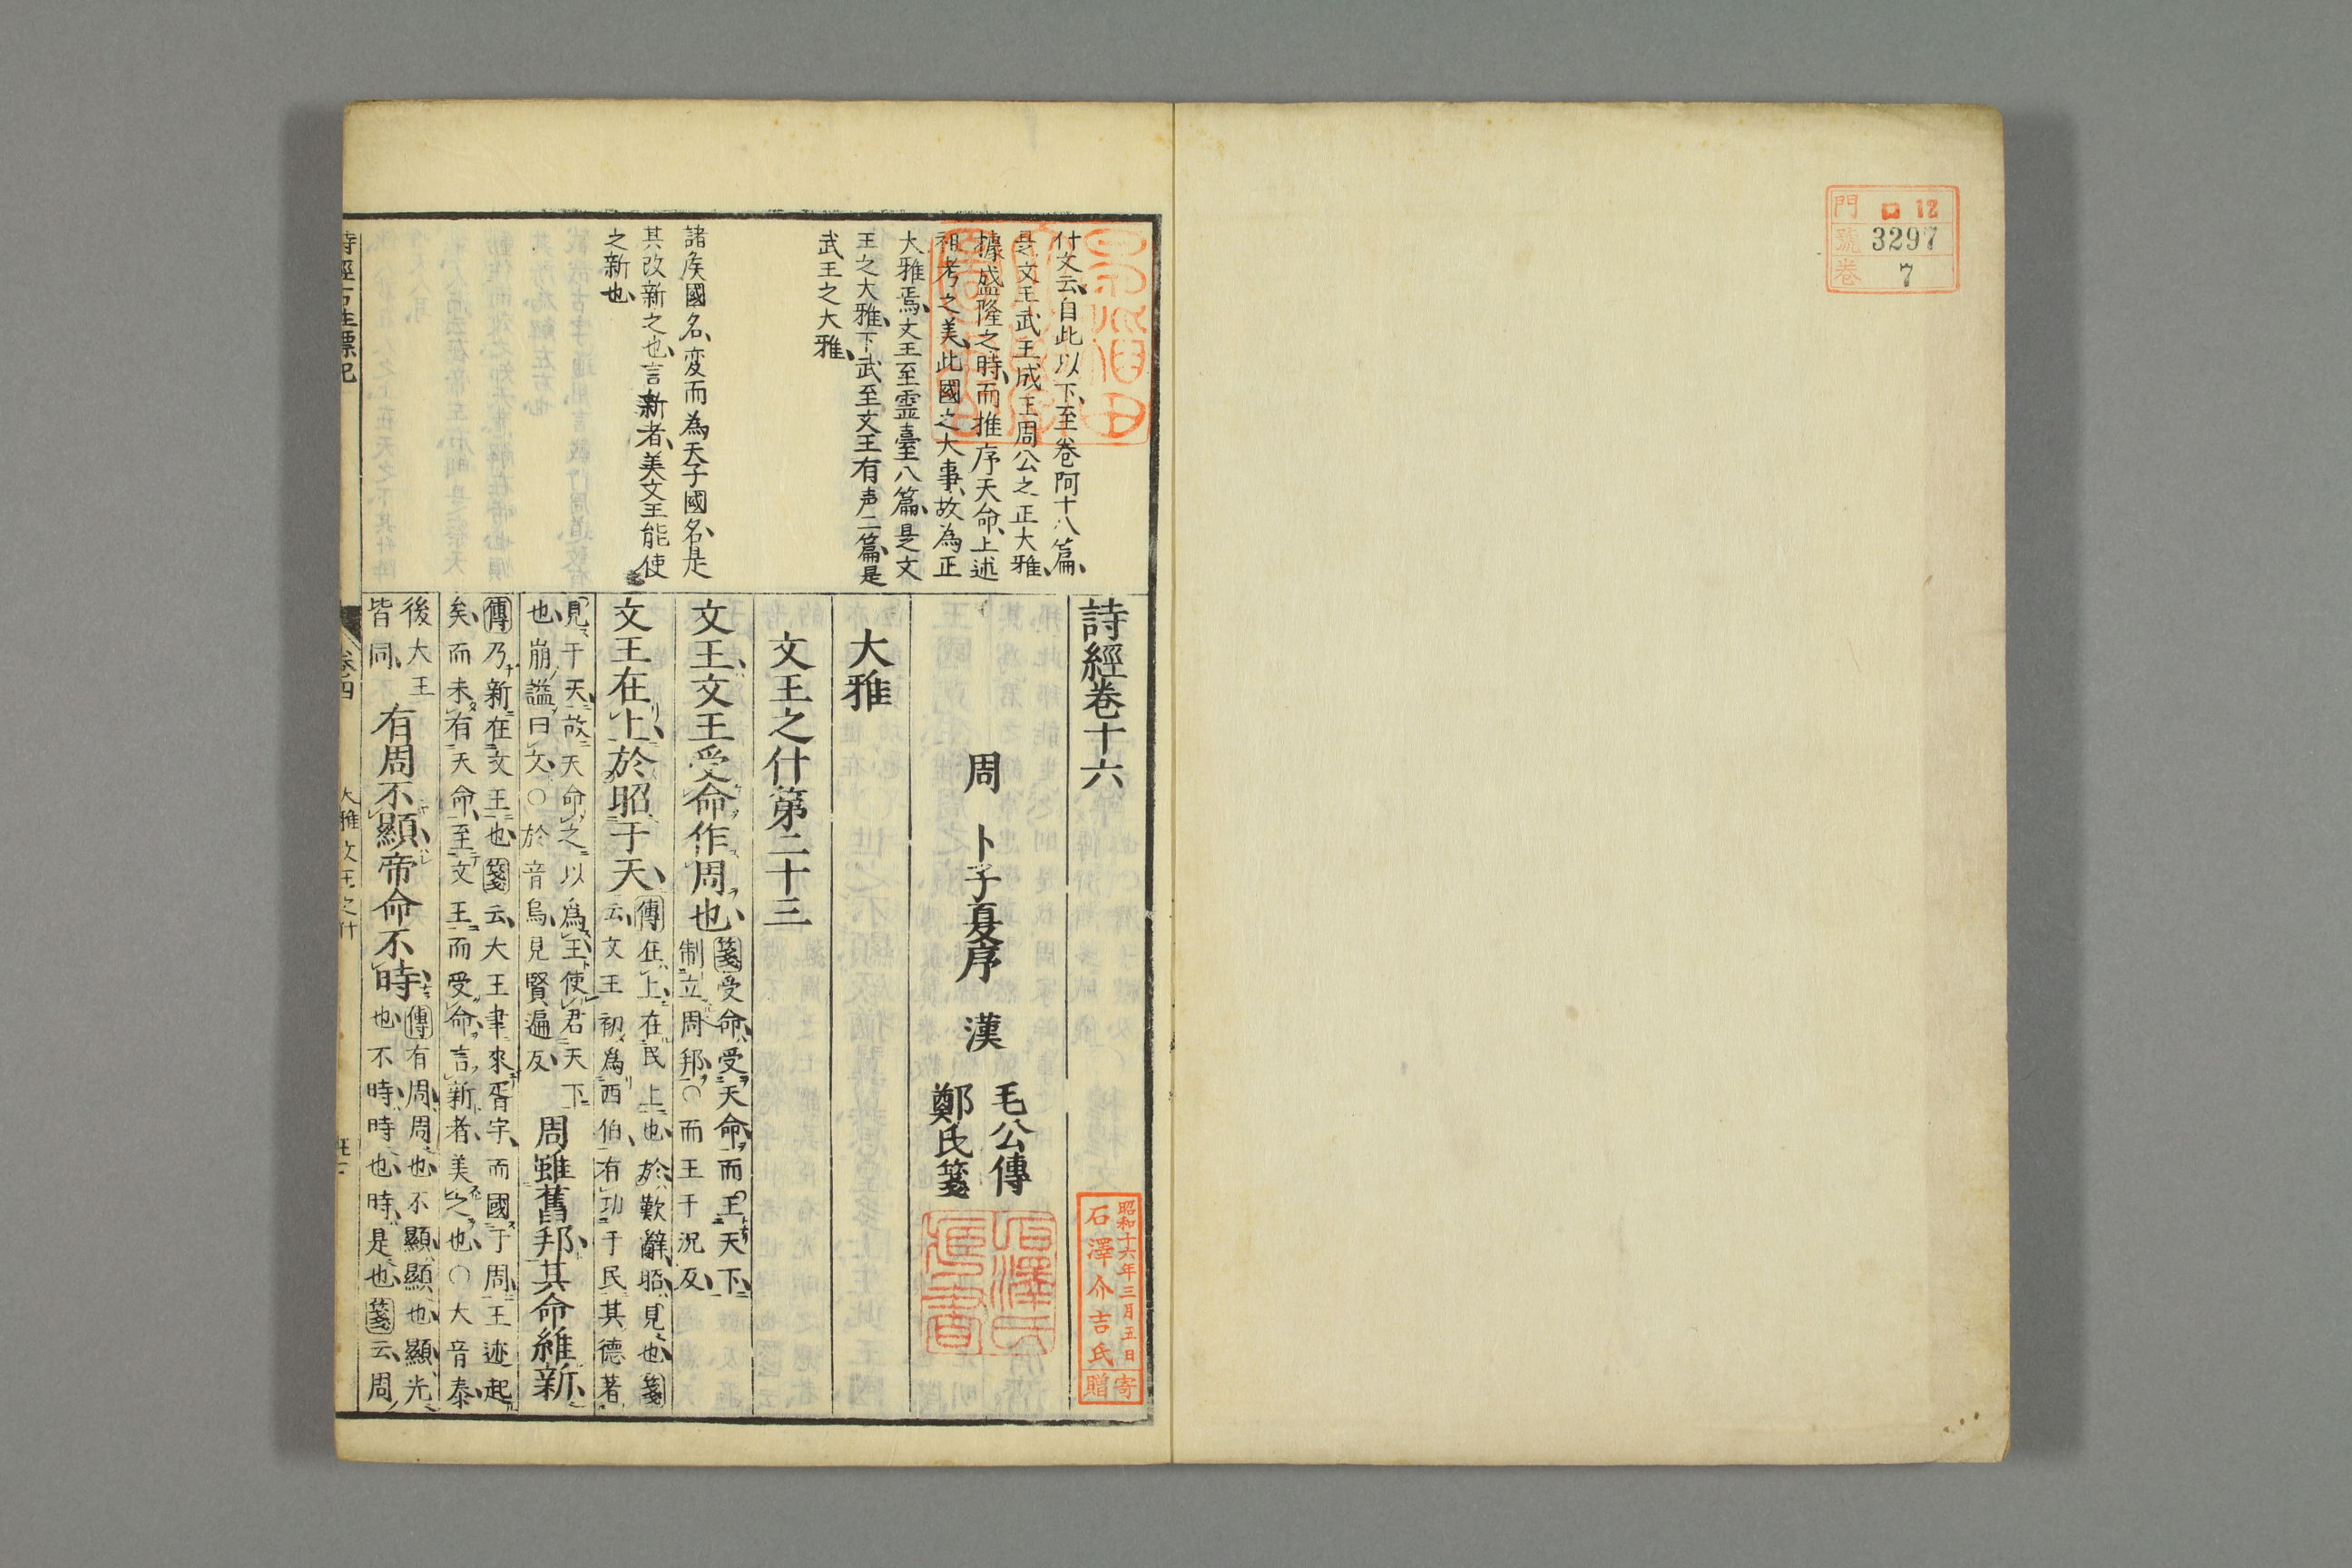 門 ロ 12
號 3297
卷 7
什文云、自此以下、至卷阿十八篇、
是文王武王成王周公之正大雅、
據盛隆之時、而推序天命、上述
祖考之美、此國之大事、故為正
大雅焉、文王至霊臺八篇、是文
王之大雅、下武至文王有声二篇、是
武王之大雅、
諸矦國名、変而為天子國名、是
其改新之也、言新者、美文王能使
之新也、
詩經卷十六
周 卜子夏序 漢 毛公傳
鄭氏箋
昭和十六年三月五日
石澤介吉氏
寄贈
大雅
文王之什第二十三
文王、文王受命作周也、箋受命、受天命、而王天下、
制立周邦、○而王于況反、
文王在上、於昭于天、傳在上、在民上也、於、歎辭、昭、見也、箋
云、文王初爲西伯、有功于民、其德著
見于天、故天命之以爲王、使君天下
也、崩謚曰文、○於音烏、見賢遍反、周雖舊邦、其命維新、
傳乃新在文王也、箋云、大王聿來胥宇、而國于周、王迹起
矣、而未有天命、至文王而受命、言新者、美之也、○大音泰、
後大王
皆同、有周不顯、帝命不時、傳有周、周也、不顯、顯也、顯、光
也、不時、時也、時、是也、箋云、周
卷四
大雅文王之什